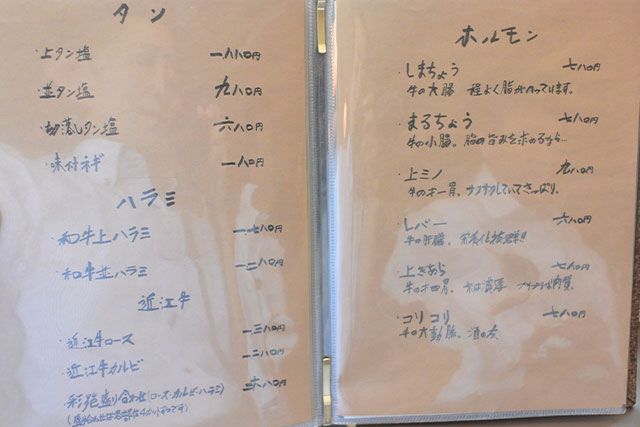 タン
・上タン塩 一八八〇円
・並タン塩 九八〇円
・切落しタン塩 六八〇円
・味付ネギ 一八〇円
ハラミ
・和牛上ハラミ 一七八〇円
・和牛並ハラミ 一二八〇円
近江牛
・近江牛ロース 一三八〇円
・近江牛カルビ 一二八〇円
彩苑盛り合わせ(ロース・カルビ・ハラミ) 八〇円
ホルモン
・しまちょう 七八〇円
牛の大腸 程よく脂がのっています。
・まるちょう 七八〇円
牛の小腸。脂の旨みを求めるなら…
・上ミノ 九八〇円
牛の才一胃、サクサクしていてさっぱり。
・レバー 六八〇円
牛の肝臓、栄養価抜群!!
・上きあら 七八〇円
牛の才四胃、
・コリコリ 七八〇円
牛の大動脈、酒の友